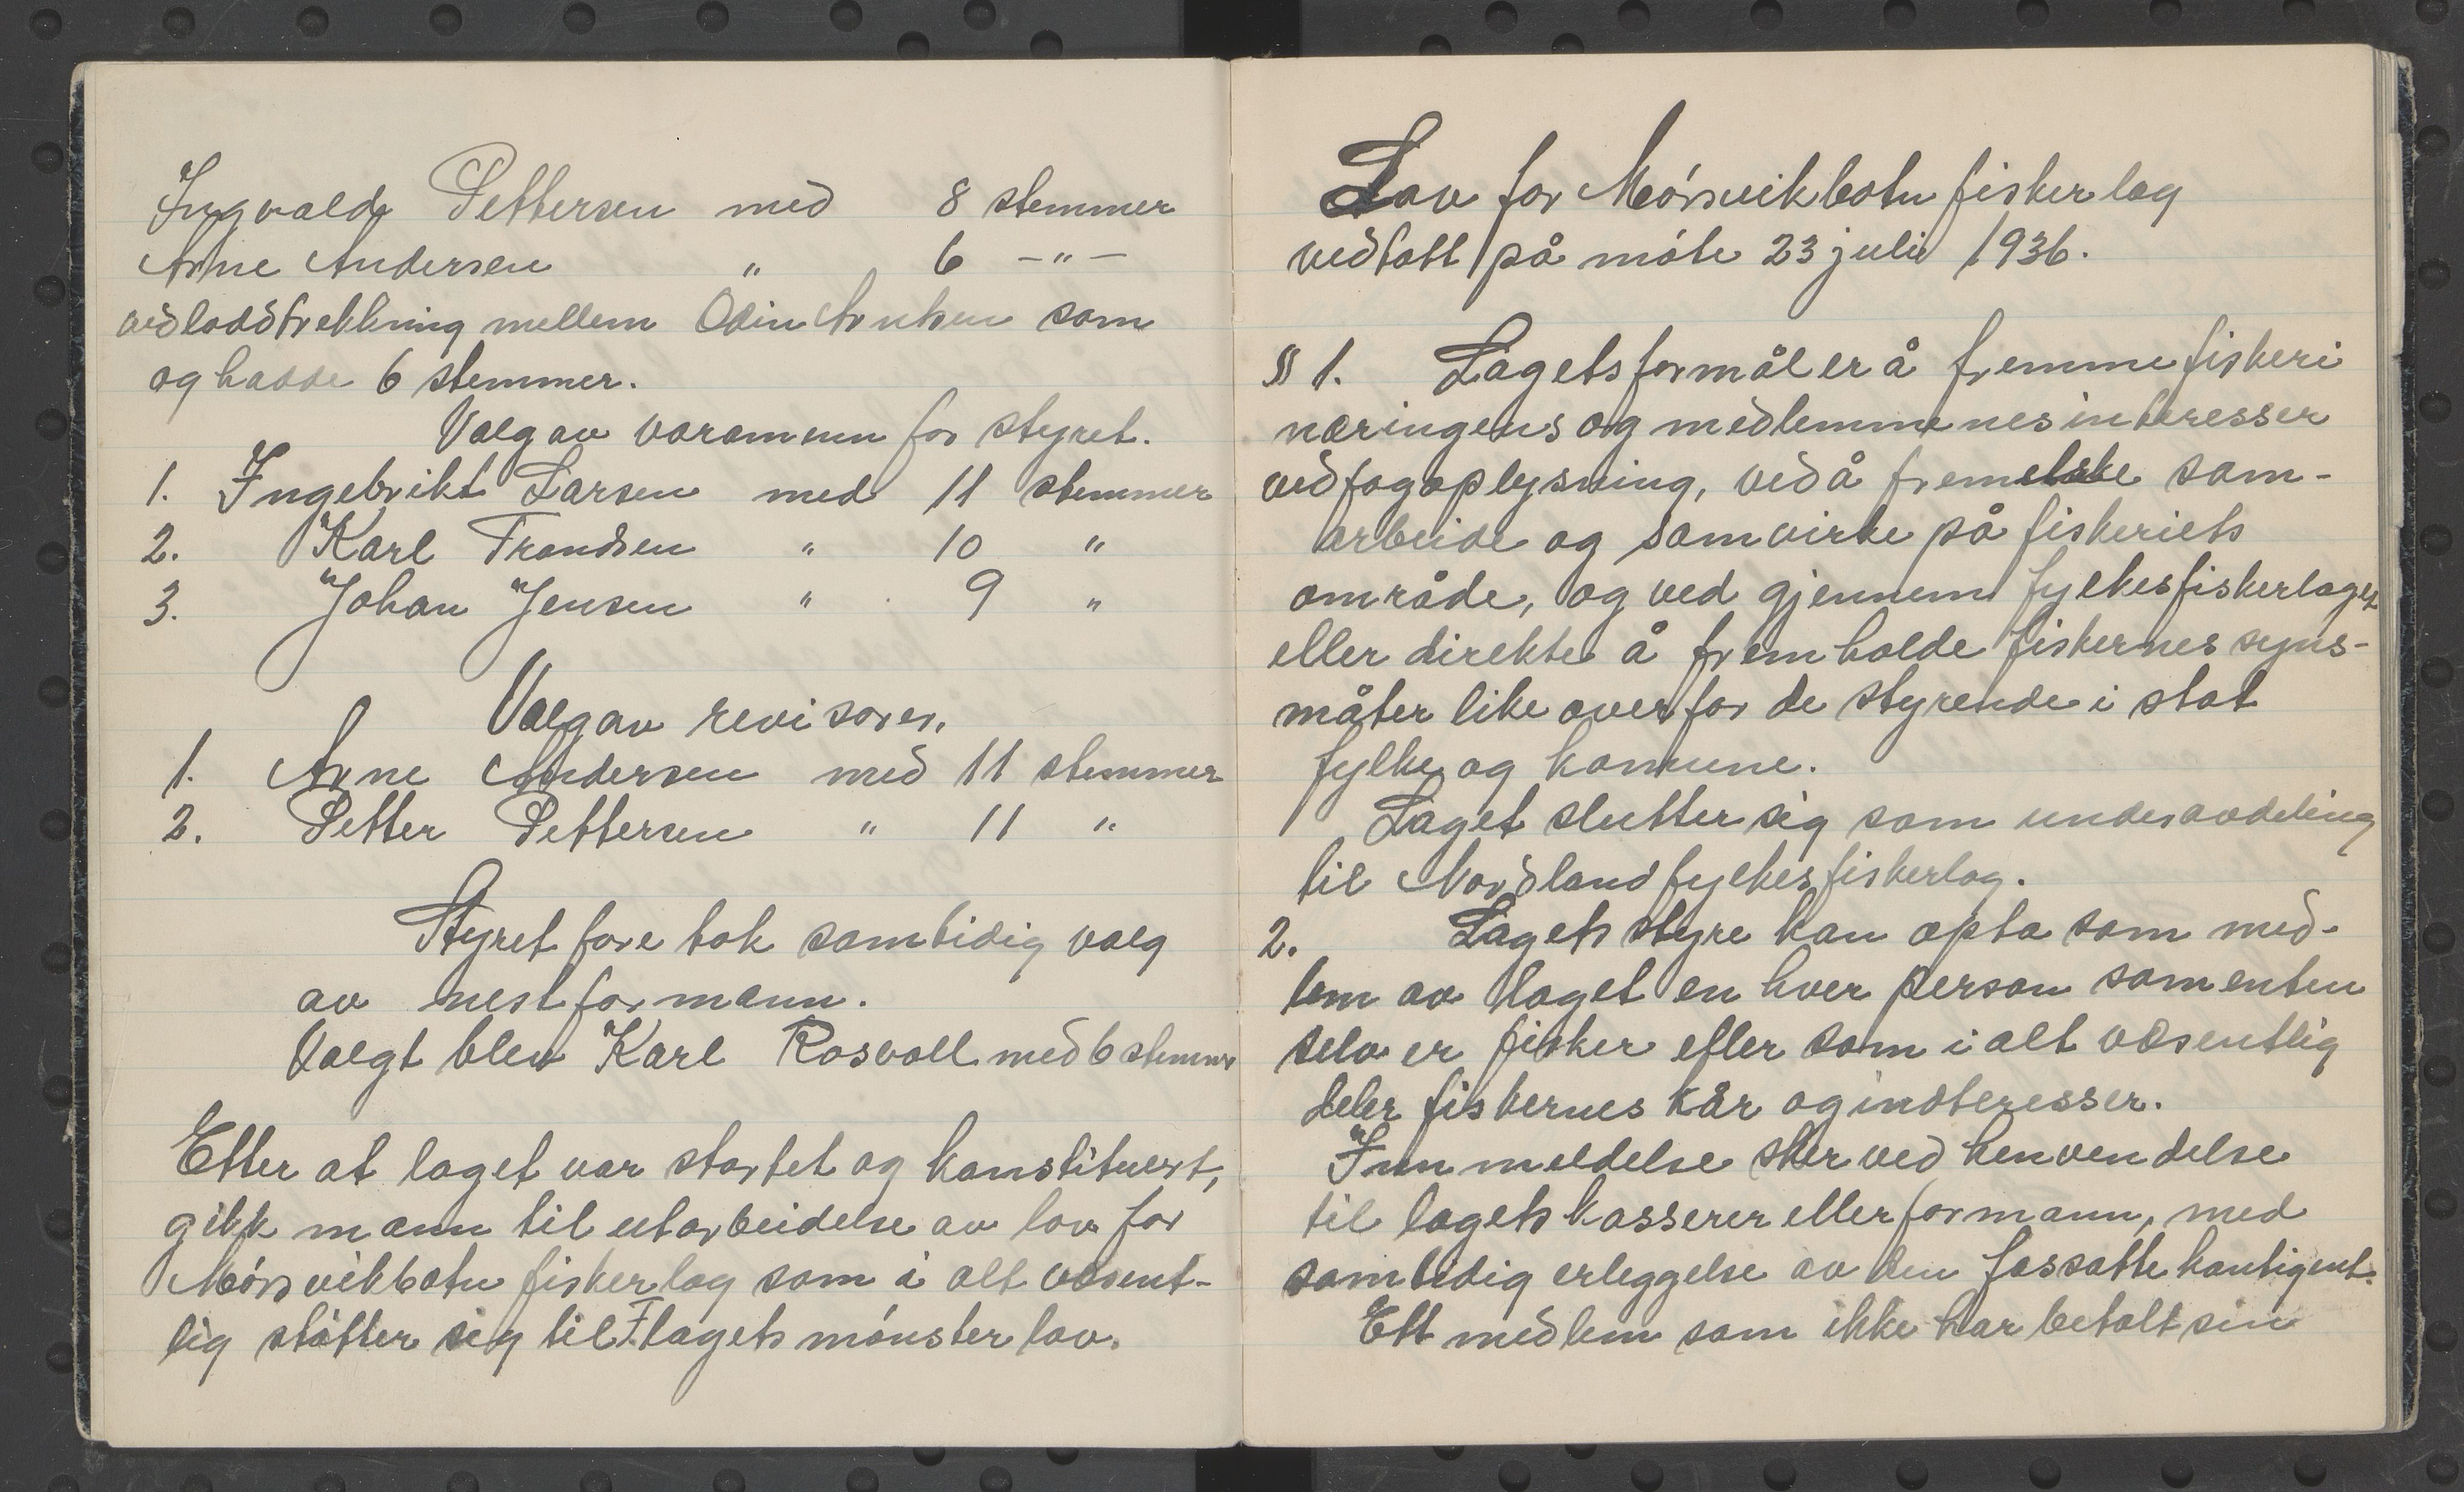 Ingvald Pettersen med 8 stemmer
Arne Andersen " 6 -"-
ved loddtrekkning mellem Odin som
og hadde 6 stemmer.
Valg av varamenn for styret.
1. Ingebrikt Larsen med 11 stemmer
2. Karl Trondsen " 10 "
3. Johan Jensen " 9 "
Valg av revisorer.
1. Arne Andersen med 11 stemmer
2. Petter Pettersen " 11 "
Styret fore tok samtidig valg
av nestformann.
Valgt blev Karl Rosvoll med 6 stemmer
Etter at laget var startet og konstituert,
gikk mann til utarbeidelse av lov for
Mórsvikbotn fiskerlag som i alt vesent-
lig støtter sig til F.lagets mónster lov.
Lov for Mórsvikbotn fiskerlag
vedtatt på móte 23 juli 1936.
§ 1. Lagets formål er å fremme fiskeri
næringens og medlemmenes interesser
ved fagoplysning, ved å fremelske sam-
arbeide og samvirke på fiskeriets
område, og ved gjennem fylkesfiskerlaget
eller direkte å fremholde fiskernes syns-
måter like overfor de styrende i stat
fylke og komune.
Laget slutter sig som underavdeling
til Nordland fylkesfiskerlag.
2. Lagets styre kan opta som med-
lem av laget en hver person som enten
selv er fisker eller som i alt vesentlig
deler fiskernes kår og indteresser.
Innmeldelse skjer ved henvendelse
til lagets kasserer eller formann, med
samtidig erleggelse av den fassatte kontigent.
Ett medlem som ikke har betalt sin